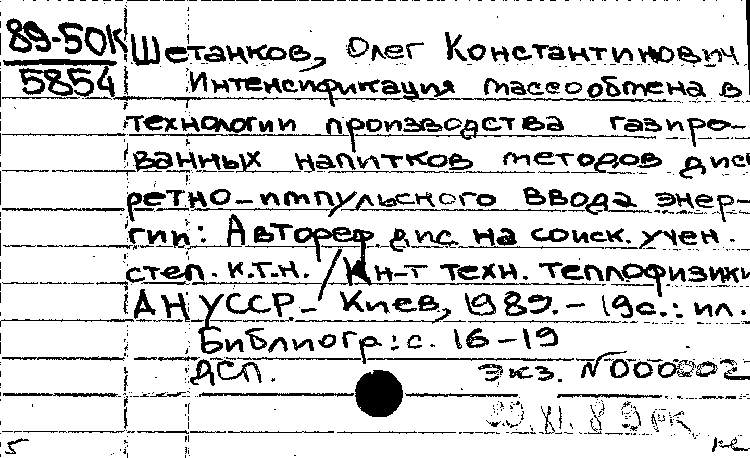 89-50К Шетанков, Олег Константинович
5854 Интенсификация массообмена в
технологии производства газиро-
ванных напитков методов диск
ретно-импульсного ввода энер-
гии: Автореф. дис. на соиск. учен.
степ. к.т.н. / Ин-т техн. теплофизики
АН УССР. - Киев, 1989. - 19 с.: ил.
Библиогр.: с. 16-19
ДСП. Экз. №000002
29.XI.89 РК
5